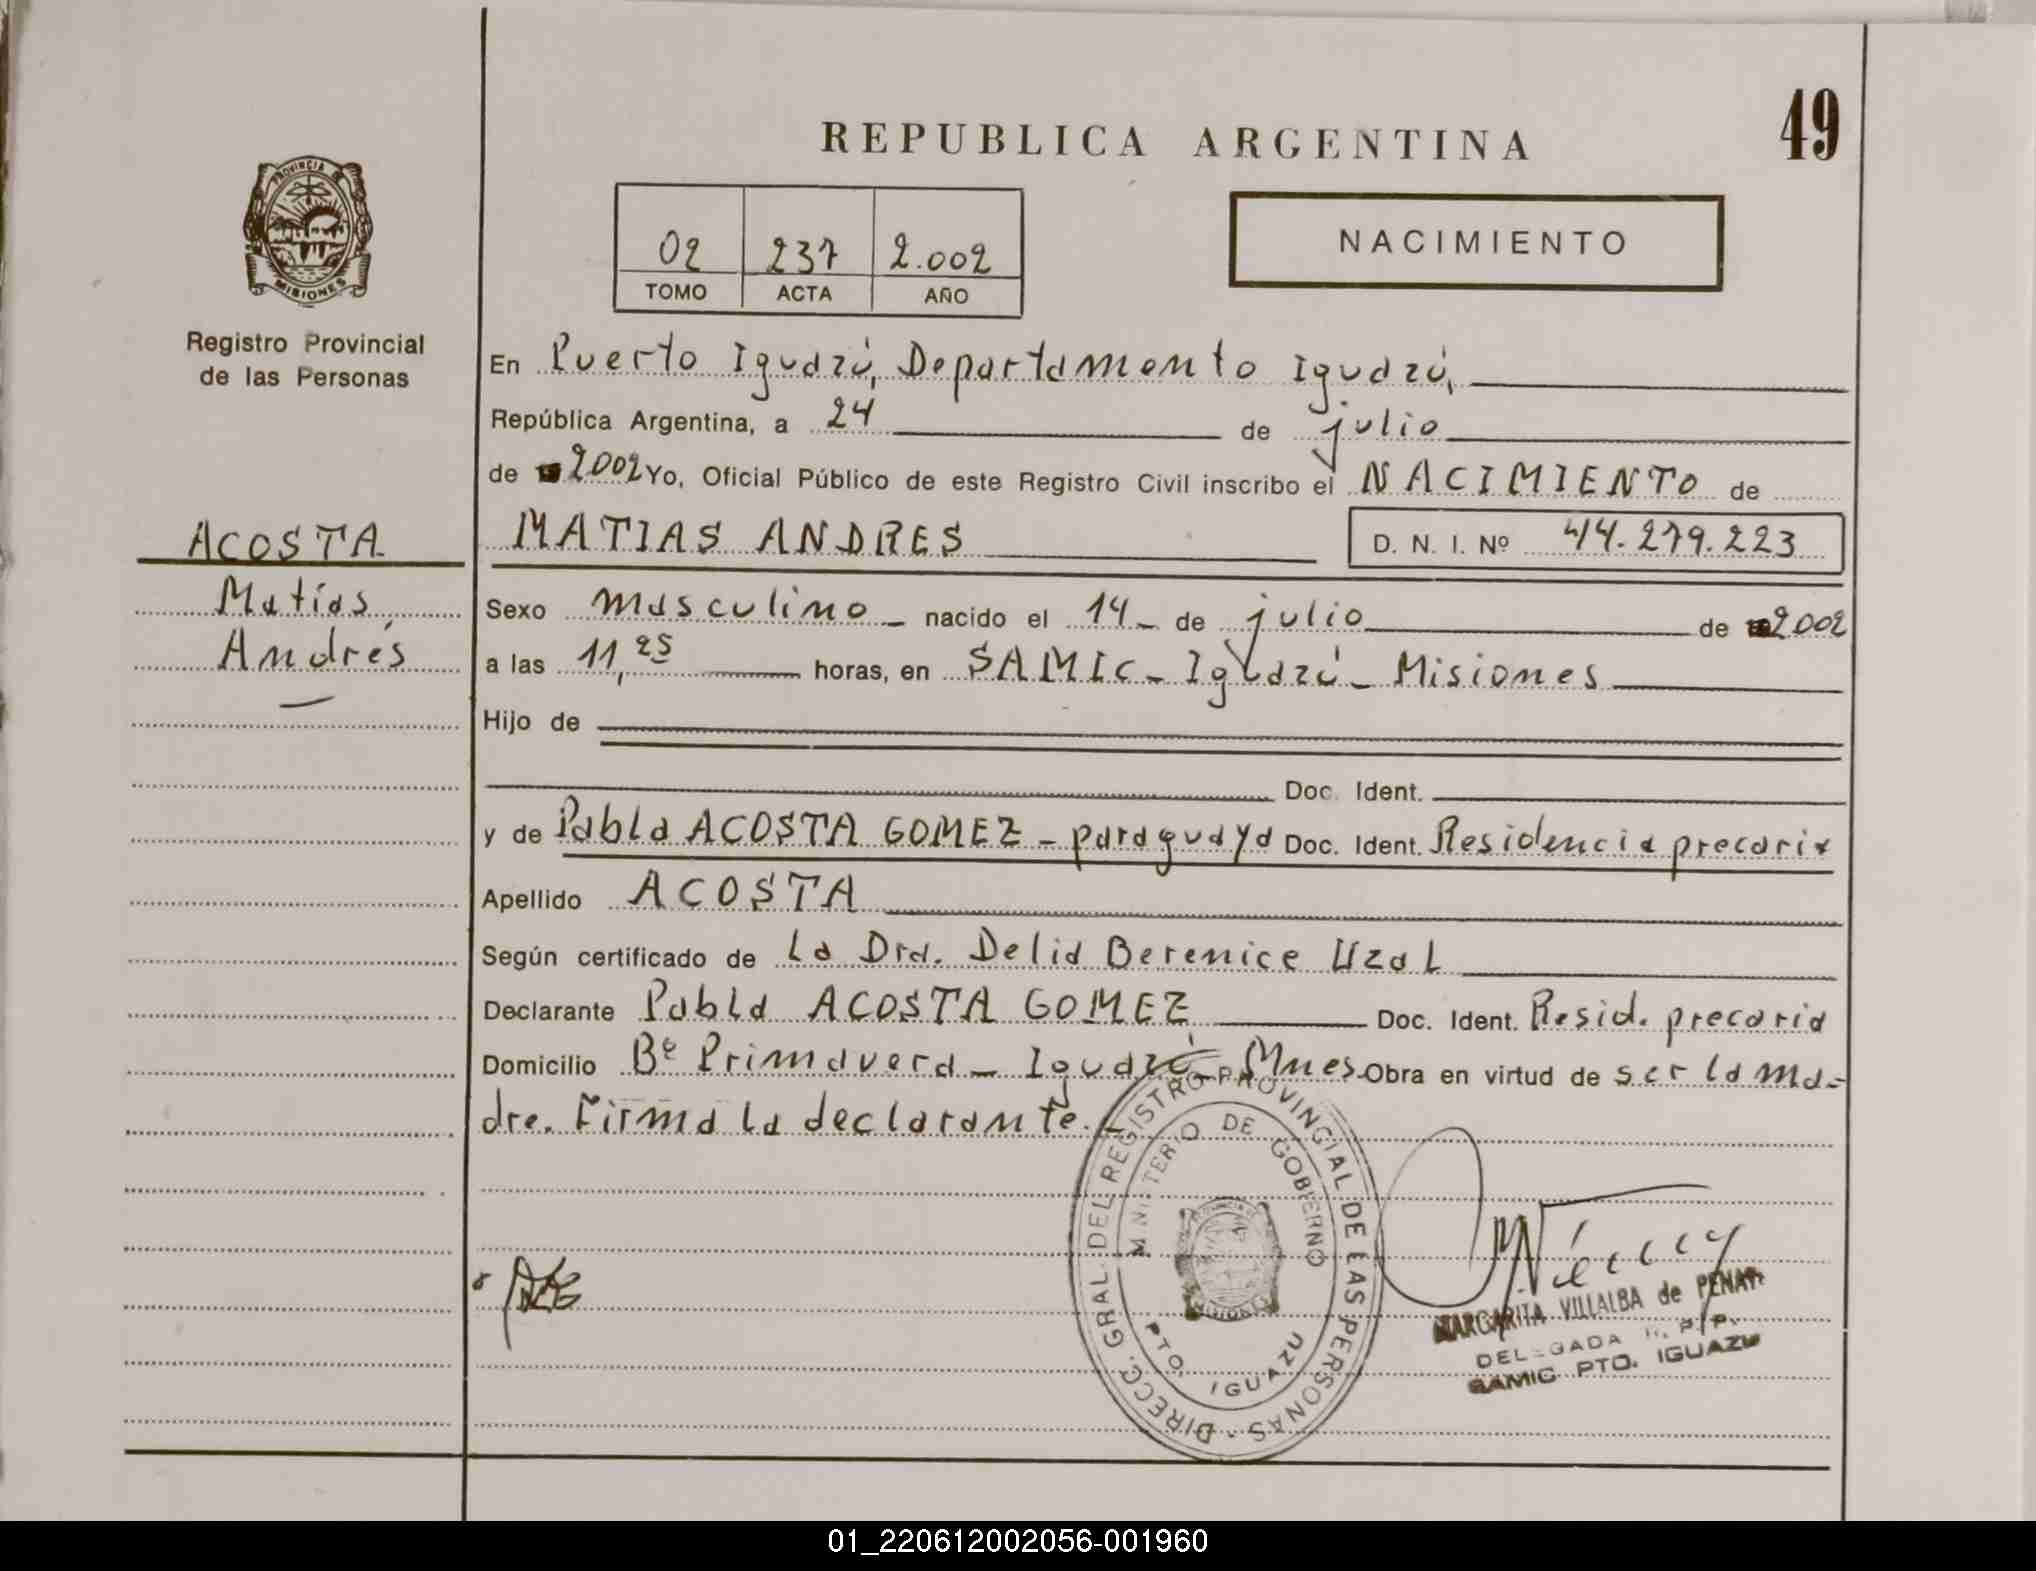 49
REPUBLICA ARGENTINA
PROVINCIA DE
MISIONES
Registro Provincial
de las Personas
02 237 2.002
TOMO ACTA AÑO
NACIMIENTO
En Puerto Iguazú, Departamento Iguazú,
República Argentina, a 24 de julio
de 2002 Yo, Oficial Público de este Registro Civil inscribo el NACIMIENTO de
ACOSTA
Matías
Andrés
MATIAS ANDRES D. N. I. Nº 44.279.223
Sexo masculino nacido el 14 de julio de 2002
a las 11,25 horas, en SAMIC - Iguazú - Misiones
Hijo de
Doc. Ident.
y de Pabla ACOSTA GOMEZ - paraguaya Doc. Ident. Residencia precaria
Apellido ACOSTA
Según certificado de La Dra. Delia Berenice Uzal
Declarante Pabla ACOSTA GOMEZ Doc. Ident. Resid. precaria
Domicilio Bº Primavera - Iguazú - Mnes. Obra en virtud de ser la ma-
dre. Firma la declarante.
DIRECC. GRAL. DEL REGISTRO PROVINCIAL DE LAS PERSONAS -
MINISTERIO DE GOBIERNO
MISIONES
PTO. IGUAZU
MARGARITA VILLALBA de
DELEGADA R. P. P.
SAMIC PTO. IGUAZU
01_220612002056-001960